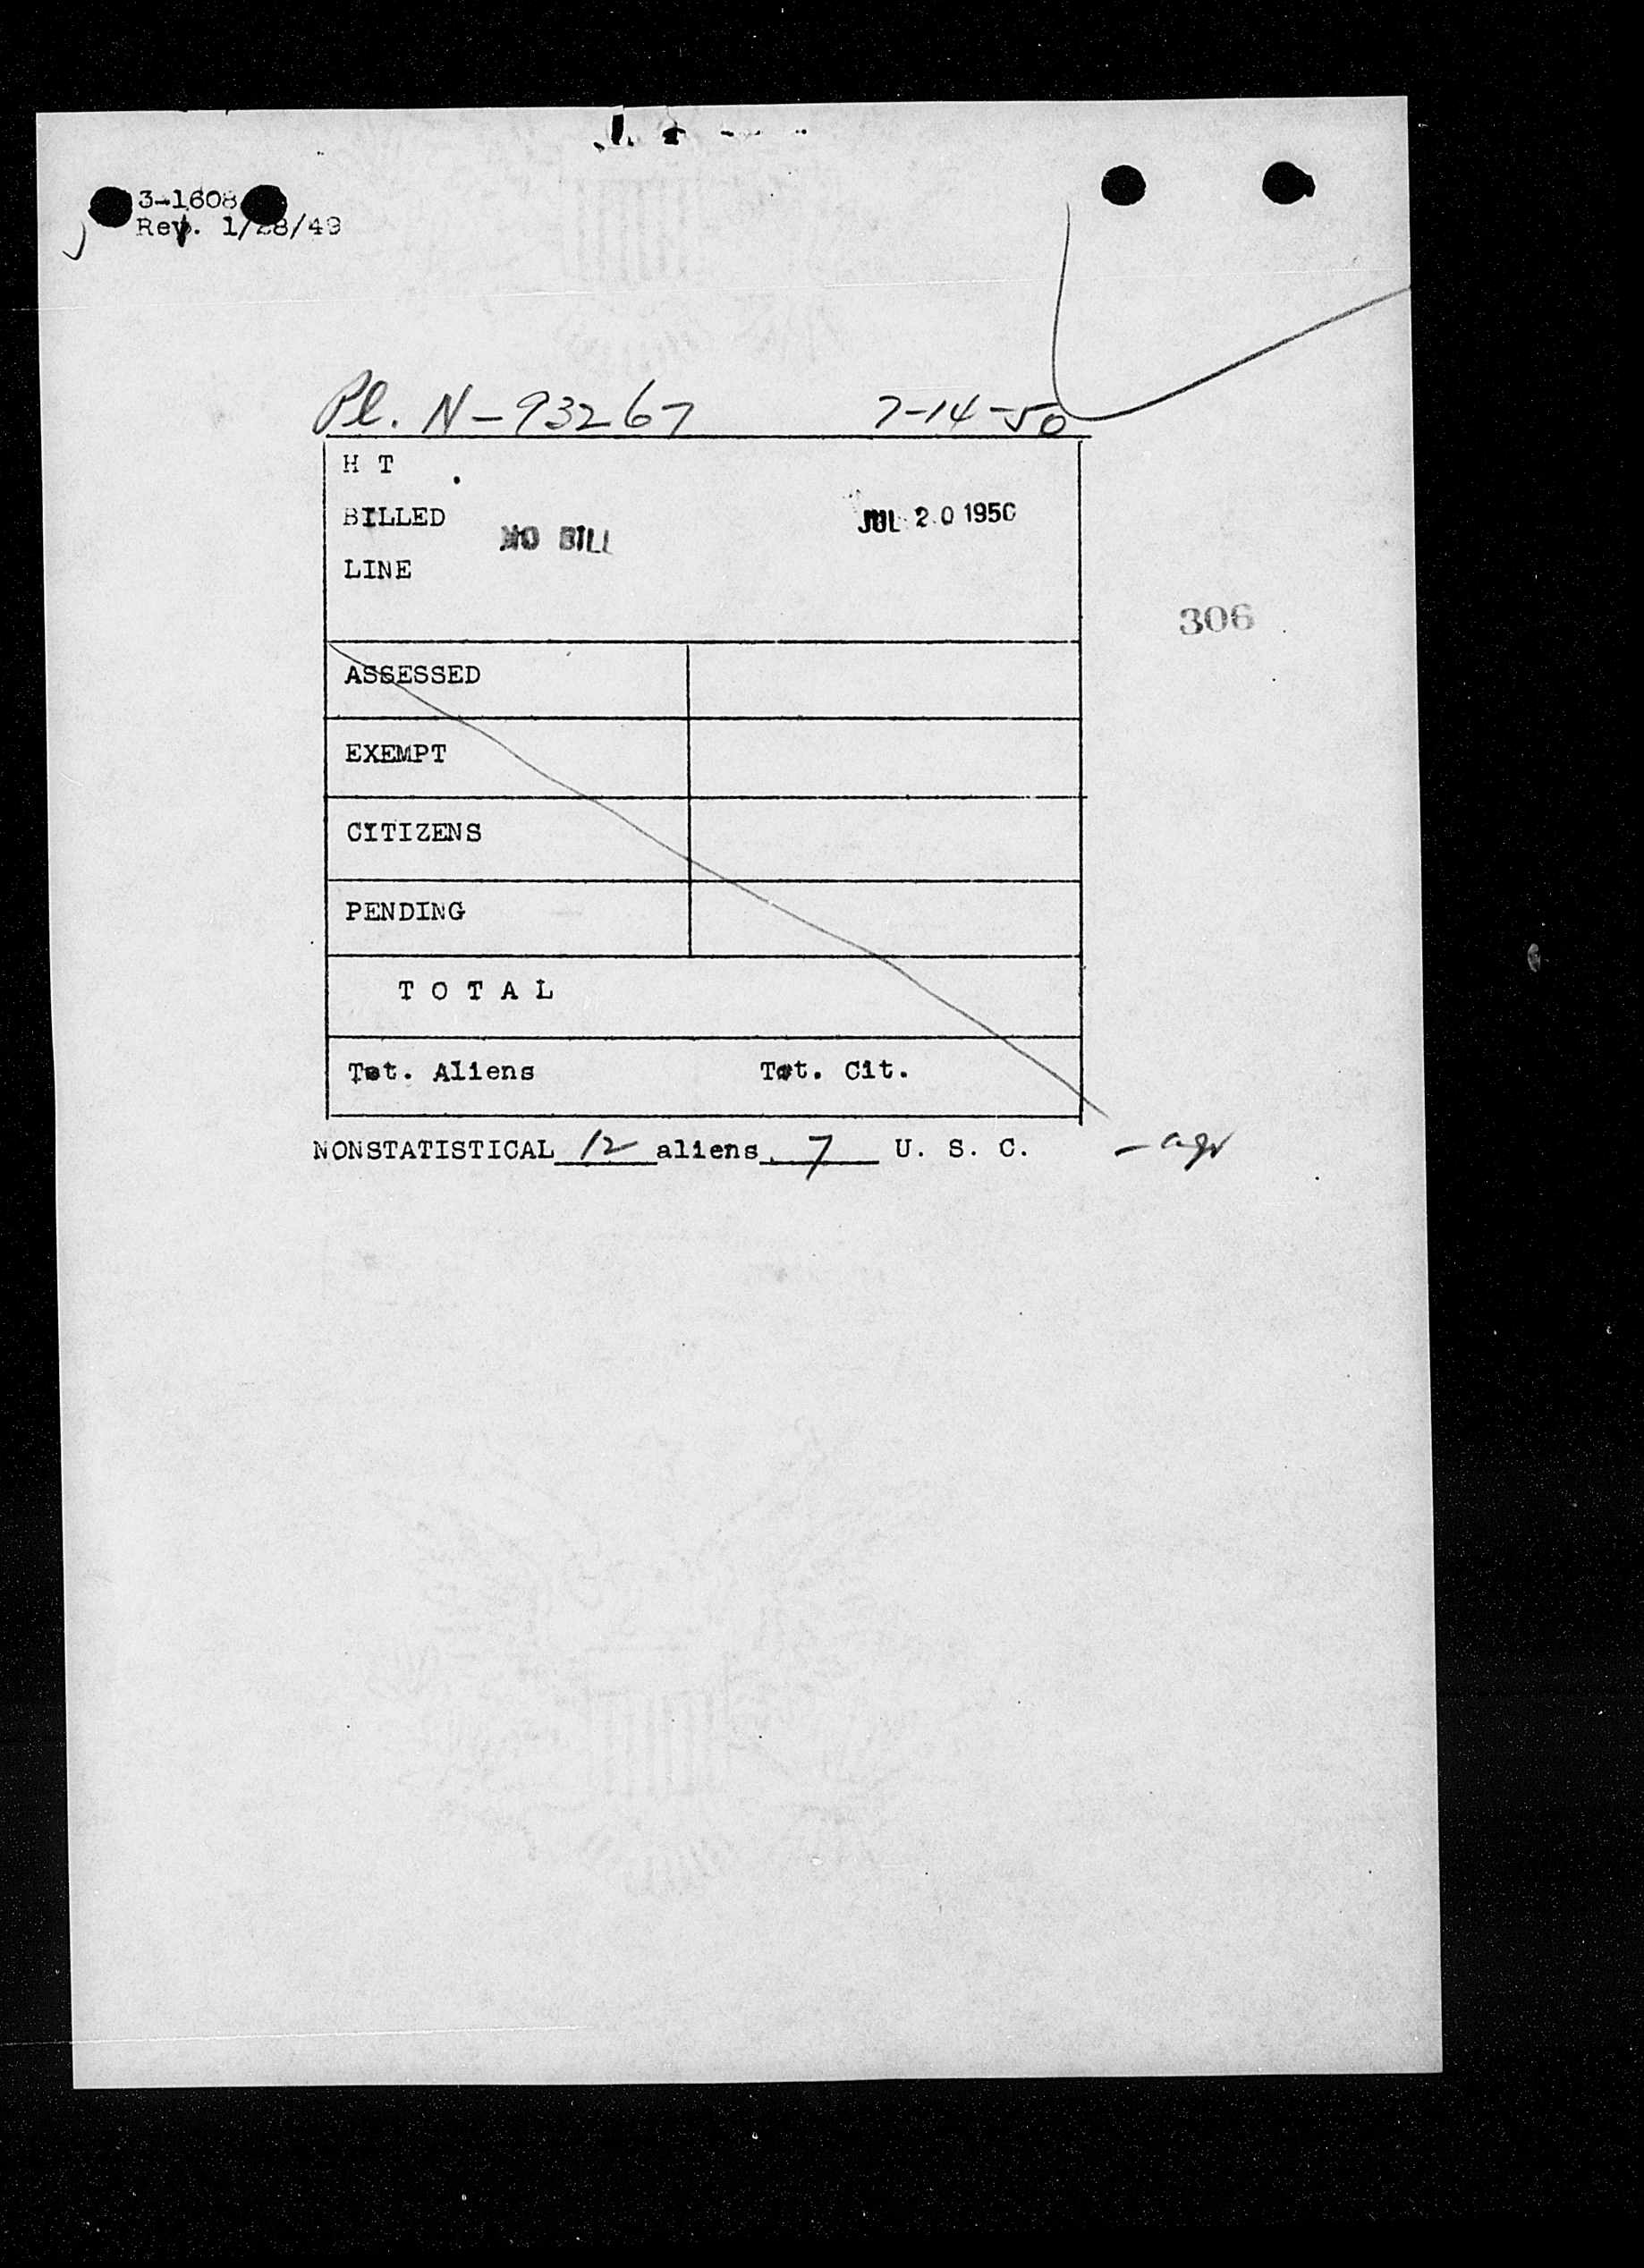 3-1608
Rev. 1/28/49
Pl. N-93267 7-14-50
H T
BILLED NO BILL JUL 20 1950
LINE
306
ASSESSED
EXEMPT
CITIZENS
PENDING
T O T A L
Tot. Aliens Tot. Cit.
NONSTATISTICAL 12 aliens 7 U. S. C.